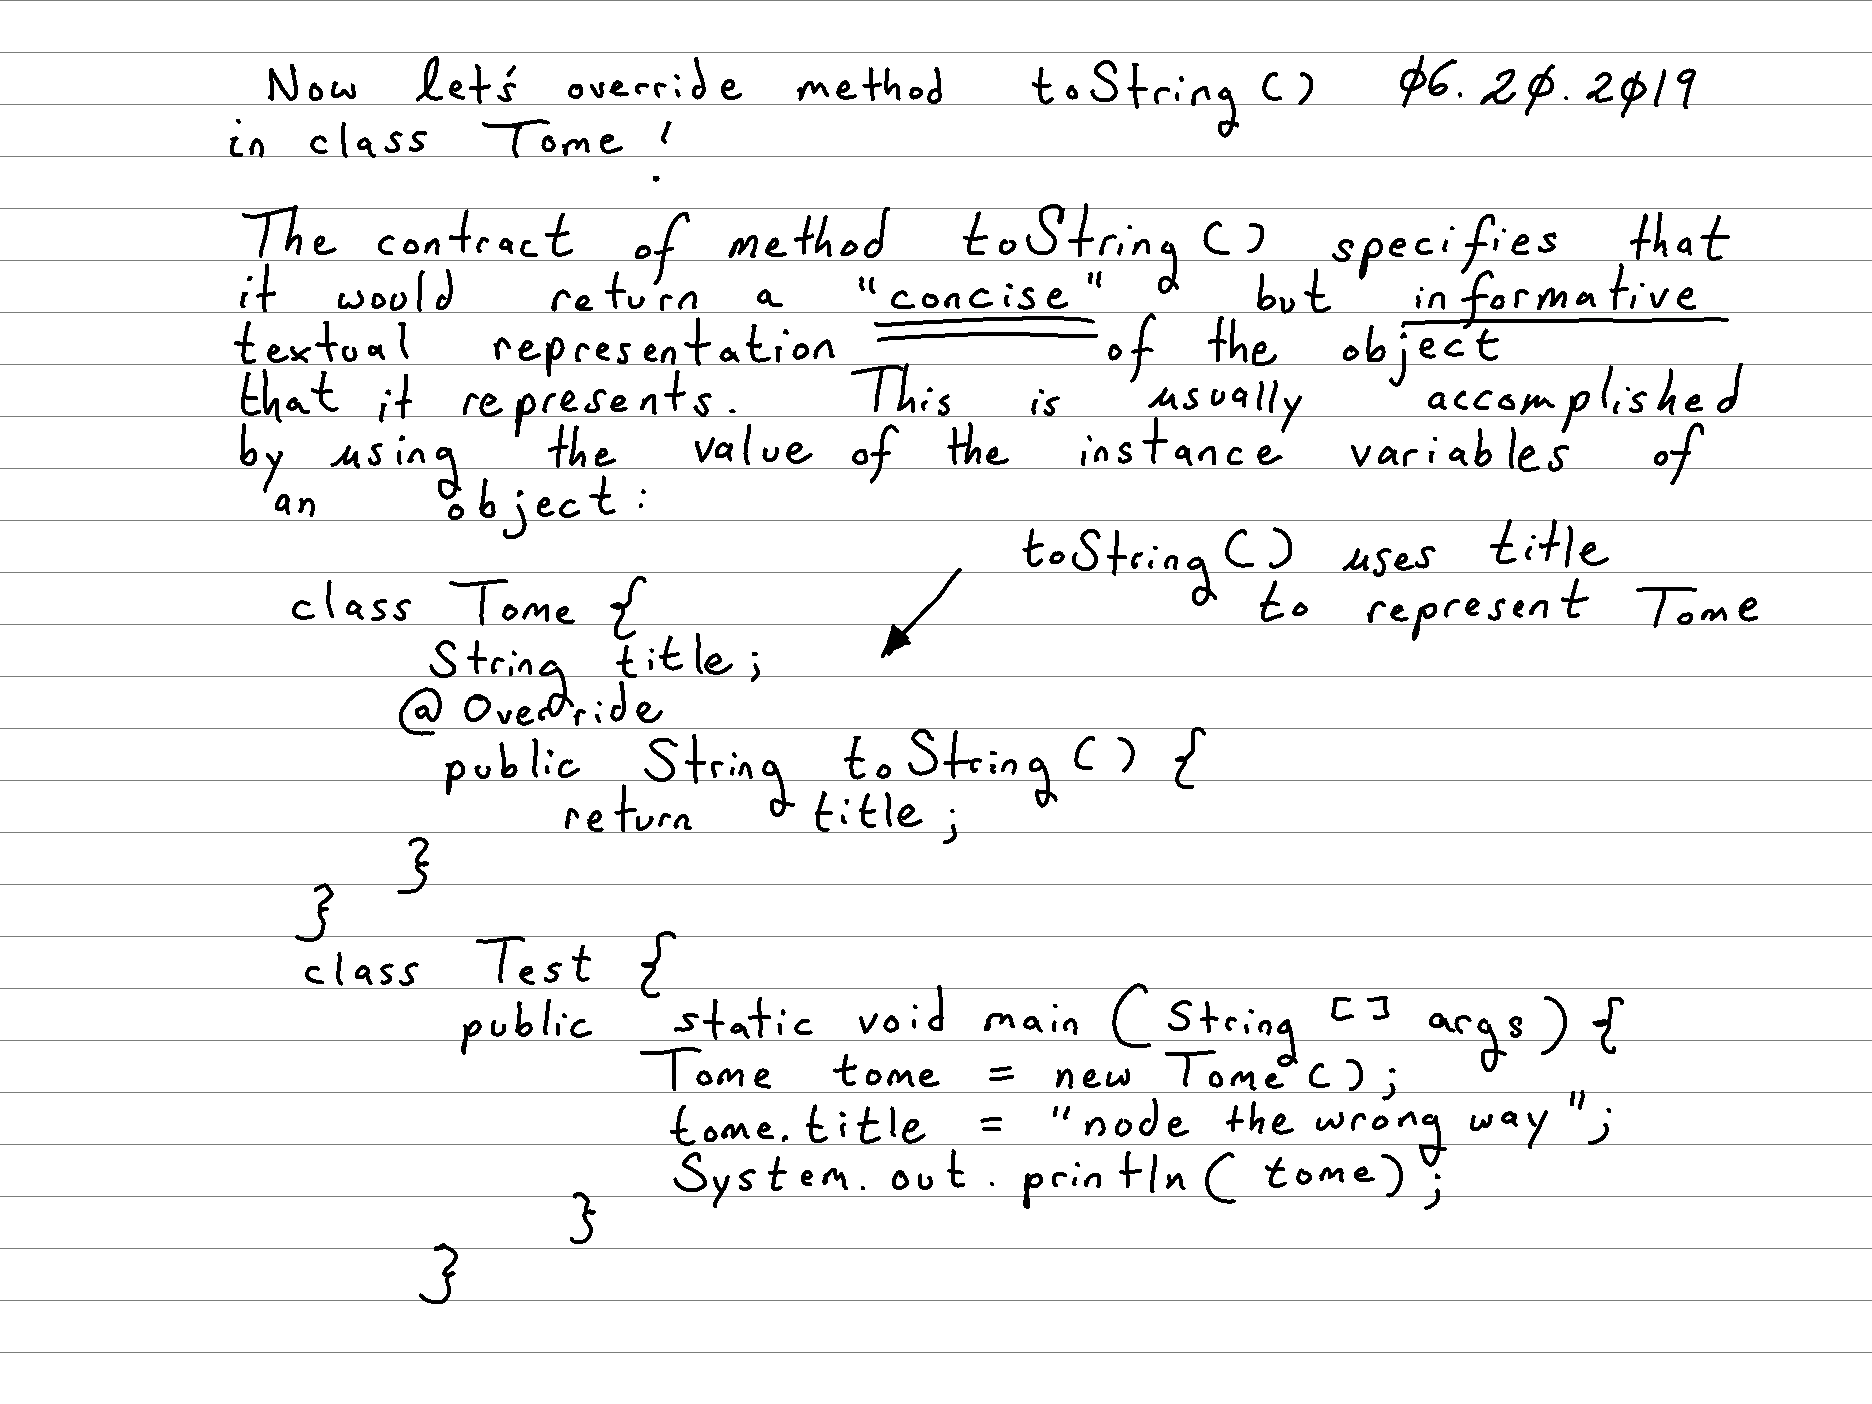 Now let's override method toString() 06.20.2019
in class Tome!
The contract of method toString() specifies that
it would return a "concise" but informative
textual representation of the object
that it represents. This is usually accomplished
by using the value of the instance variables of
an object:
toString() uses title
to represent Tome
class Tome {
String title;
@Override
public String toString() {
return title;
}
}
class Test {
public static void main (String [] args) {
Tome tome = new Tome();
tome.title = "node the wrong way";
System.out.println( tome);
}
}